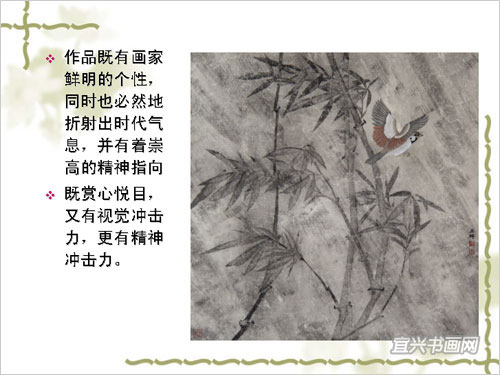 作品既有画家
鲜明的个性，
同时也必然地
折射出时代气
息，并有着崇
高的精神指向
既赏心悦目，
又有视觉冲击
力，更有精神
冲击力。
宜兴书画网